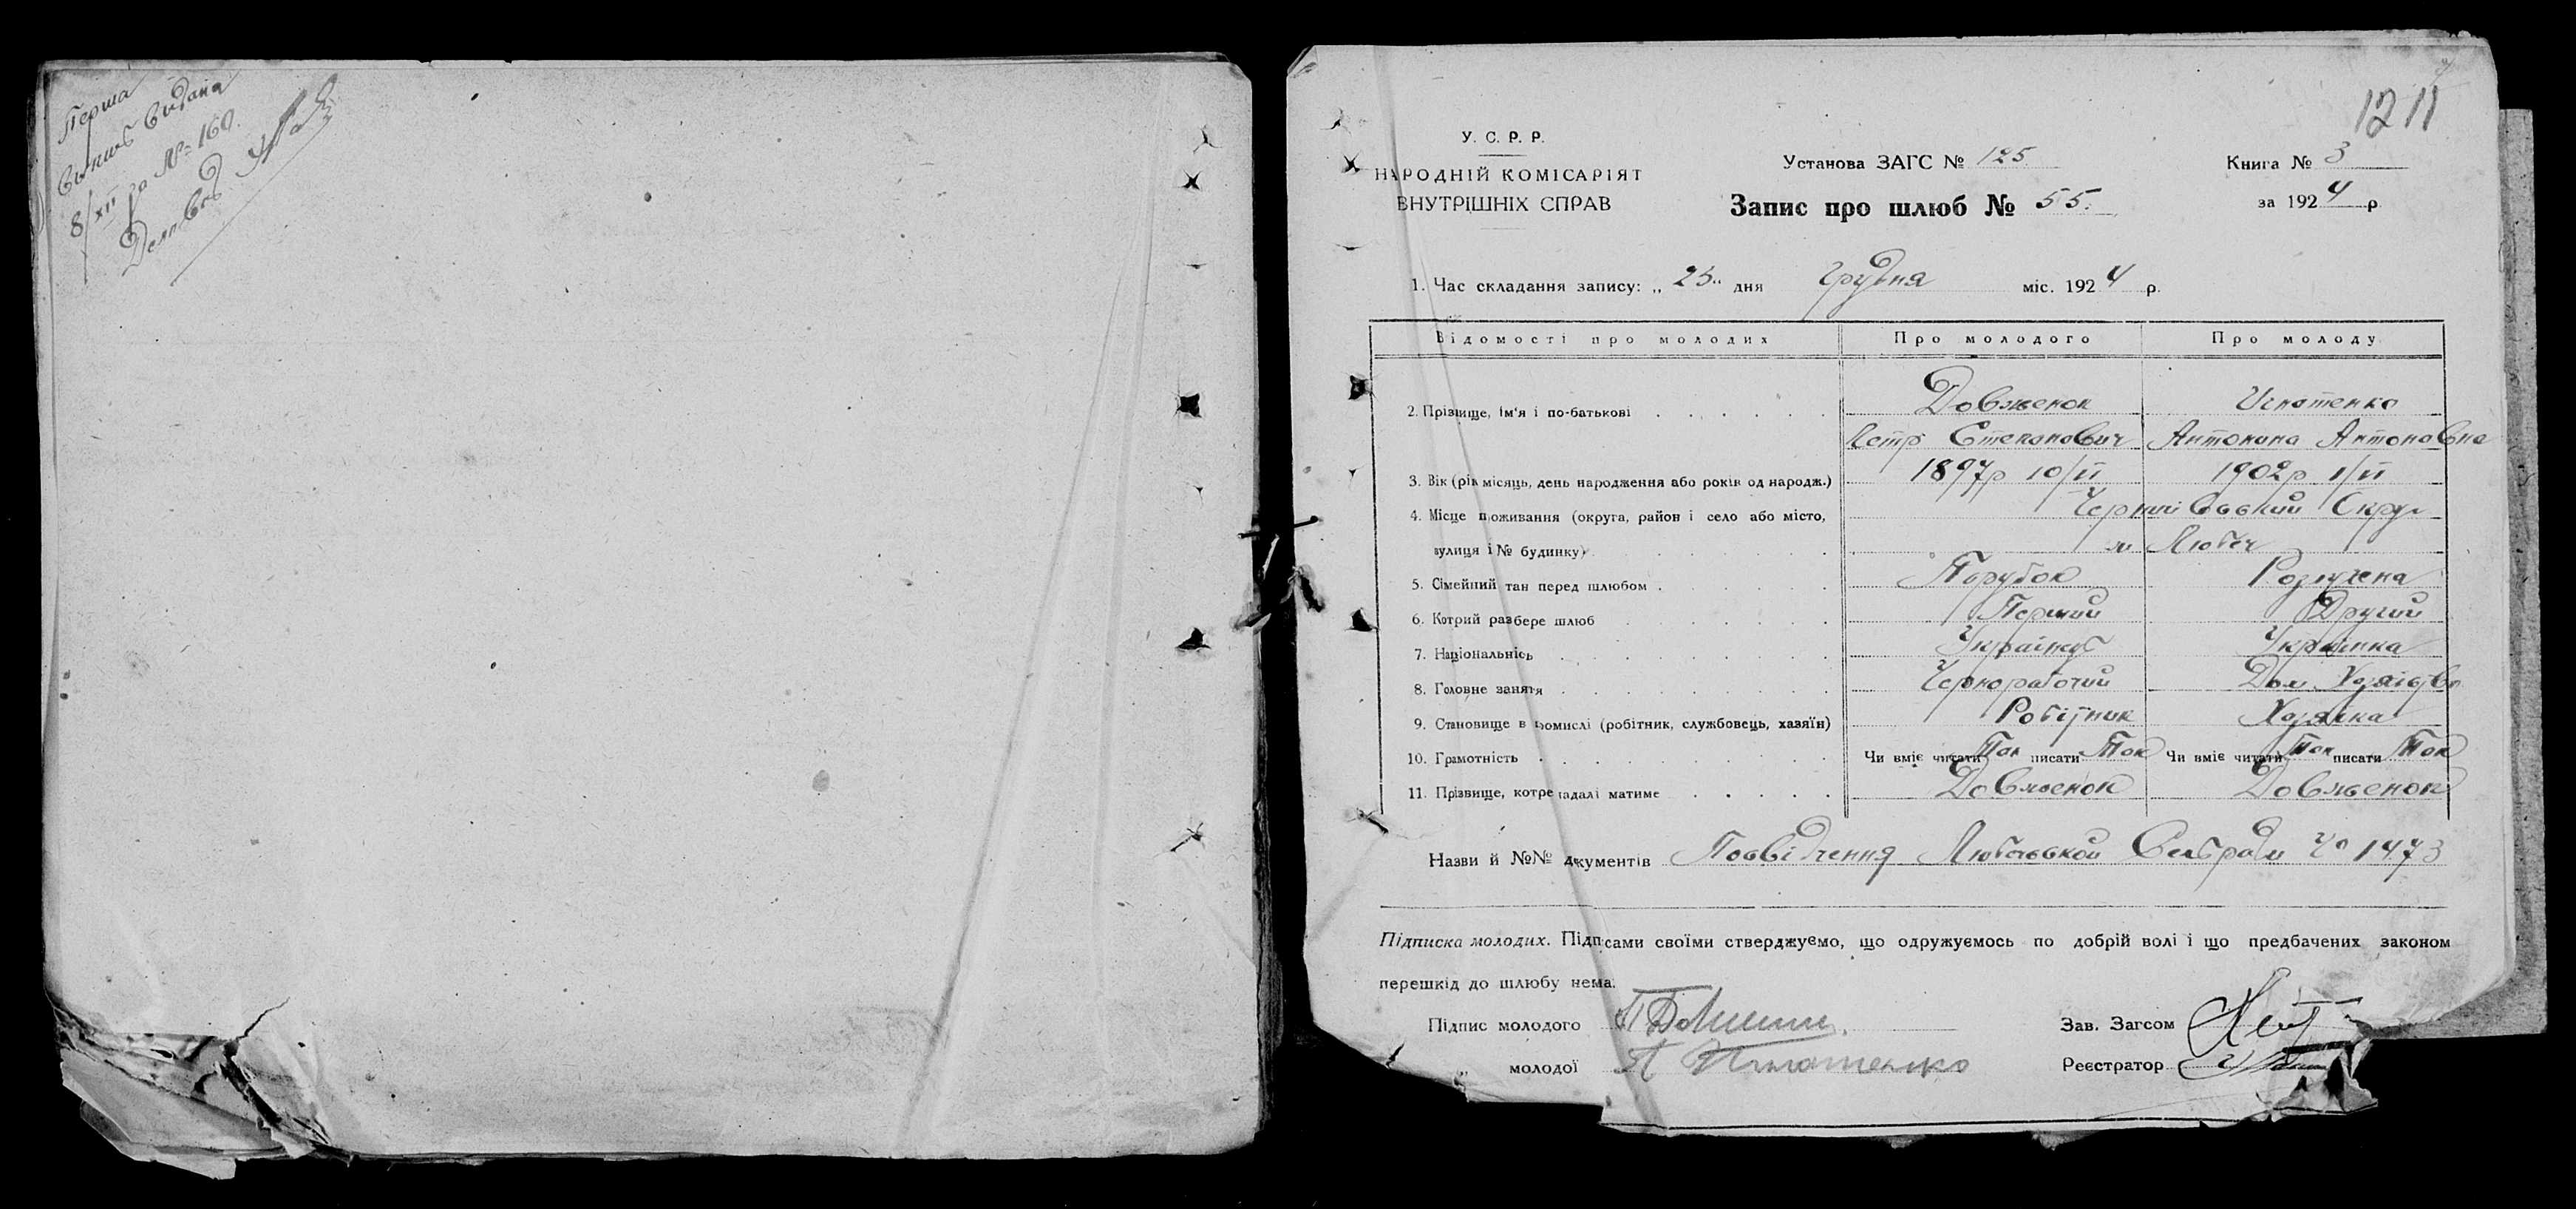 Перша
выпись видана
8/XII го № 160.
Діловод
12 11
У. С. Р. Р.
НАРОДНІЙ КОМІСАРІЯТ
ВНУТРІШНІХ СПРАВ
Установа ЗАГС № 125
Книга № 3
Запис про шлюб № 55.
за 1924 р.
1. Час складання запису: „ 23 " дня Грудня міс. 1924 р.
Відомості про молодих Про молодого Про молоду
2. Прізвище, ім'я і по-батькові Довженок Игнатенко
Петр Степанович Антонина Антоновна
3. Вік (рік місяць, день народження або років од народж.) 1897р 10/II 1902р 1/II
4. Місце проживання (округа, район і село або місто, Чернигівський Округ
вулиця і № будинку) м Любеч
5. Сімейний тан перед шлюбом Парубок Розлучена
6. Котрий раз бере шлюб Перший Другий
7. Національнісь Українець Українка
8. Головне заняття Чернорабочий Дом. Хозяйство
9. Становище в промислі (робітник, службовець, хазяїн) Робітник Хозяйка
10. Грамотність Чи вміє читати Так писати Так Чи вміє читати Так писати Так
11. Прізвище, котре надалі матиме Довженок Довженок
Назви й №№ документів Посвідчення Любечської Сельради № 1473
Підписка молодих. Підписами своїми стверджуємо, що одружуємось по добрій волі і що предбачених законом
перешкід до шлюбу нема.
Підпис молодого
Зав. Загсом
„ молодої А Игнатенко
Реєстратор